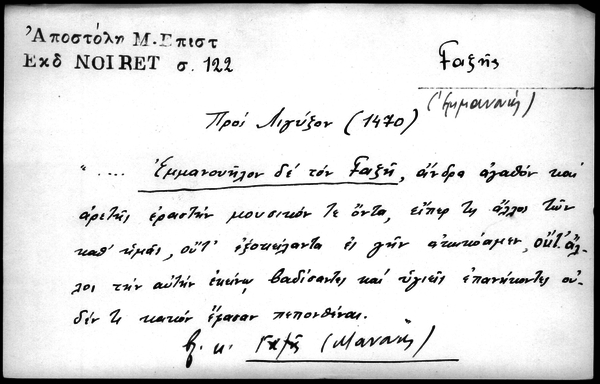 Ἀποστόλη Μ. Επιστ
Εκδ NOIRET σ. 122
Γαζῆς
(Ἐμμανουὴλ)
Πρὸς Λιγύζον (1470)
" .... Ἐμμανουῆλον δέ τόν Γαζῆ, ἄνδρα ἀγαθόν καί
ἀρετῆς ἐραστήν μουσικόν τε ὄντα, εἴπερ τις ἄλλος τῶν
καθ' ἡμᾶς, οὔτ' ἐξοκείλαντα εἰς γῆν , οὔτ' ἄλ-
λος τήν αὐτήν ἐκείνῳ βαδίσαντες καί ὑγιεῖς ἐπανήκοντες οὐ-
δέν τι κακόν ἔφασαν πεπονθέναι.
β. κ. Γαζῆς (Μανουὴλ)